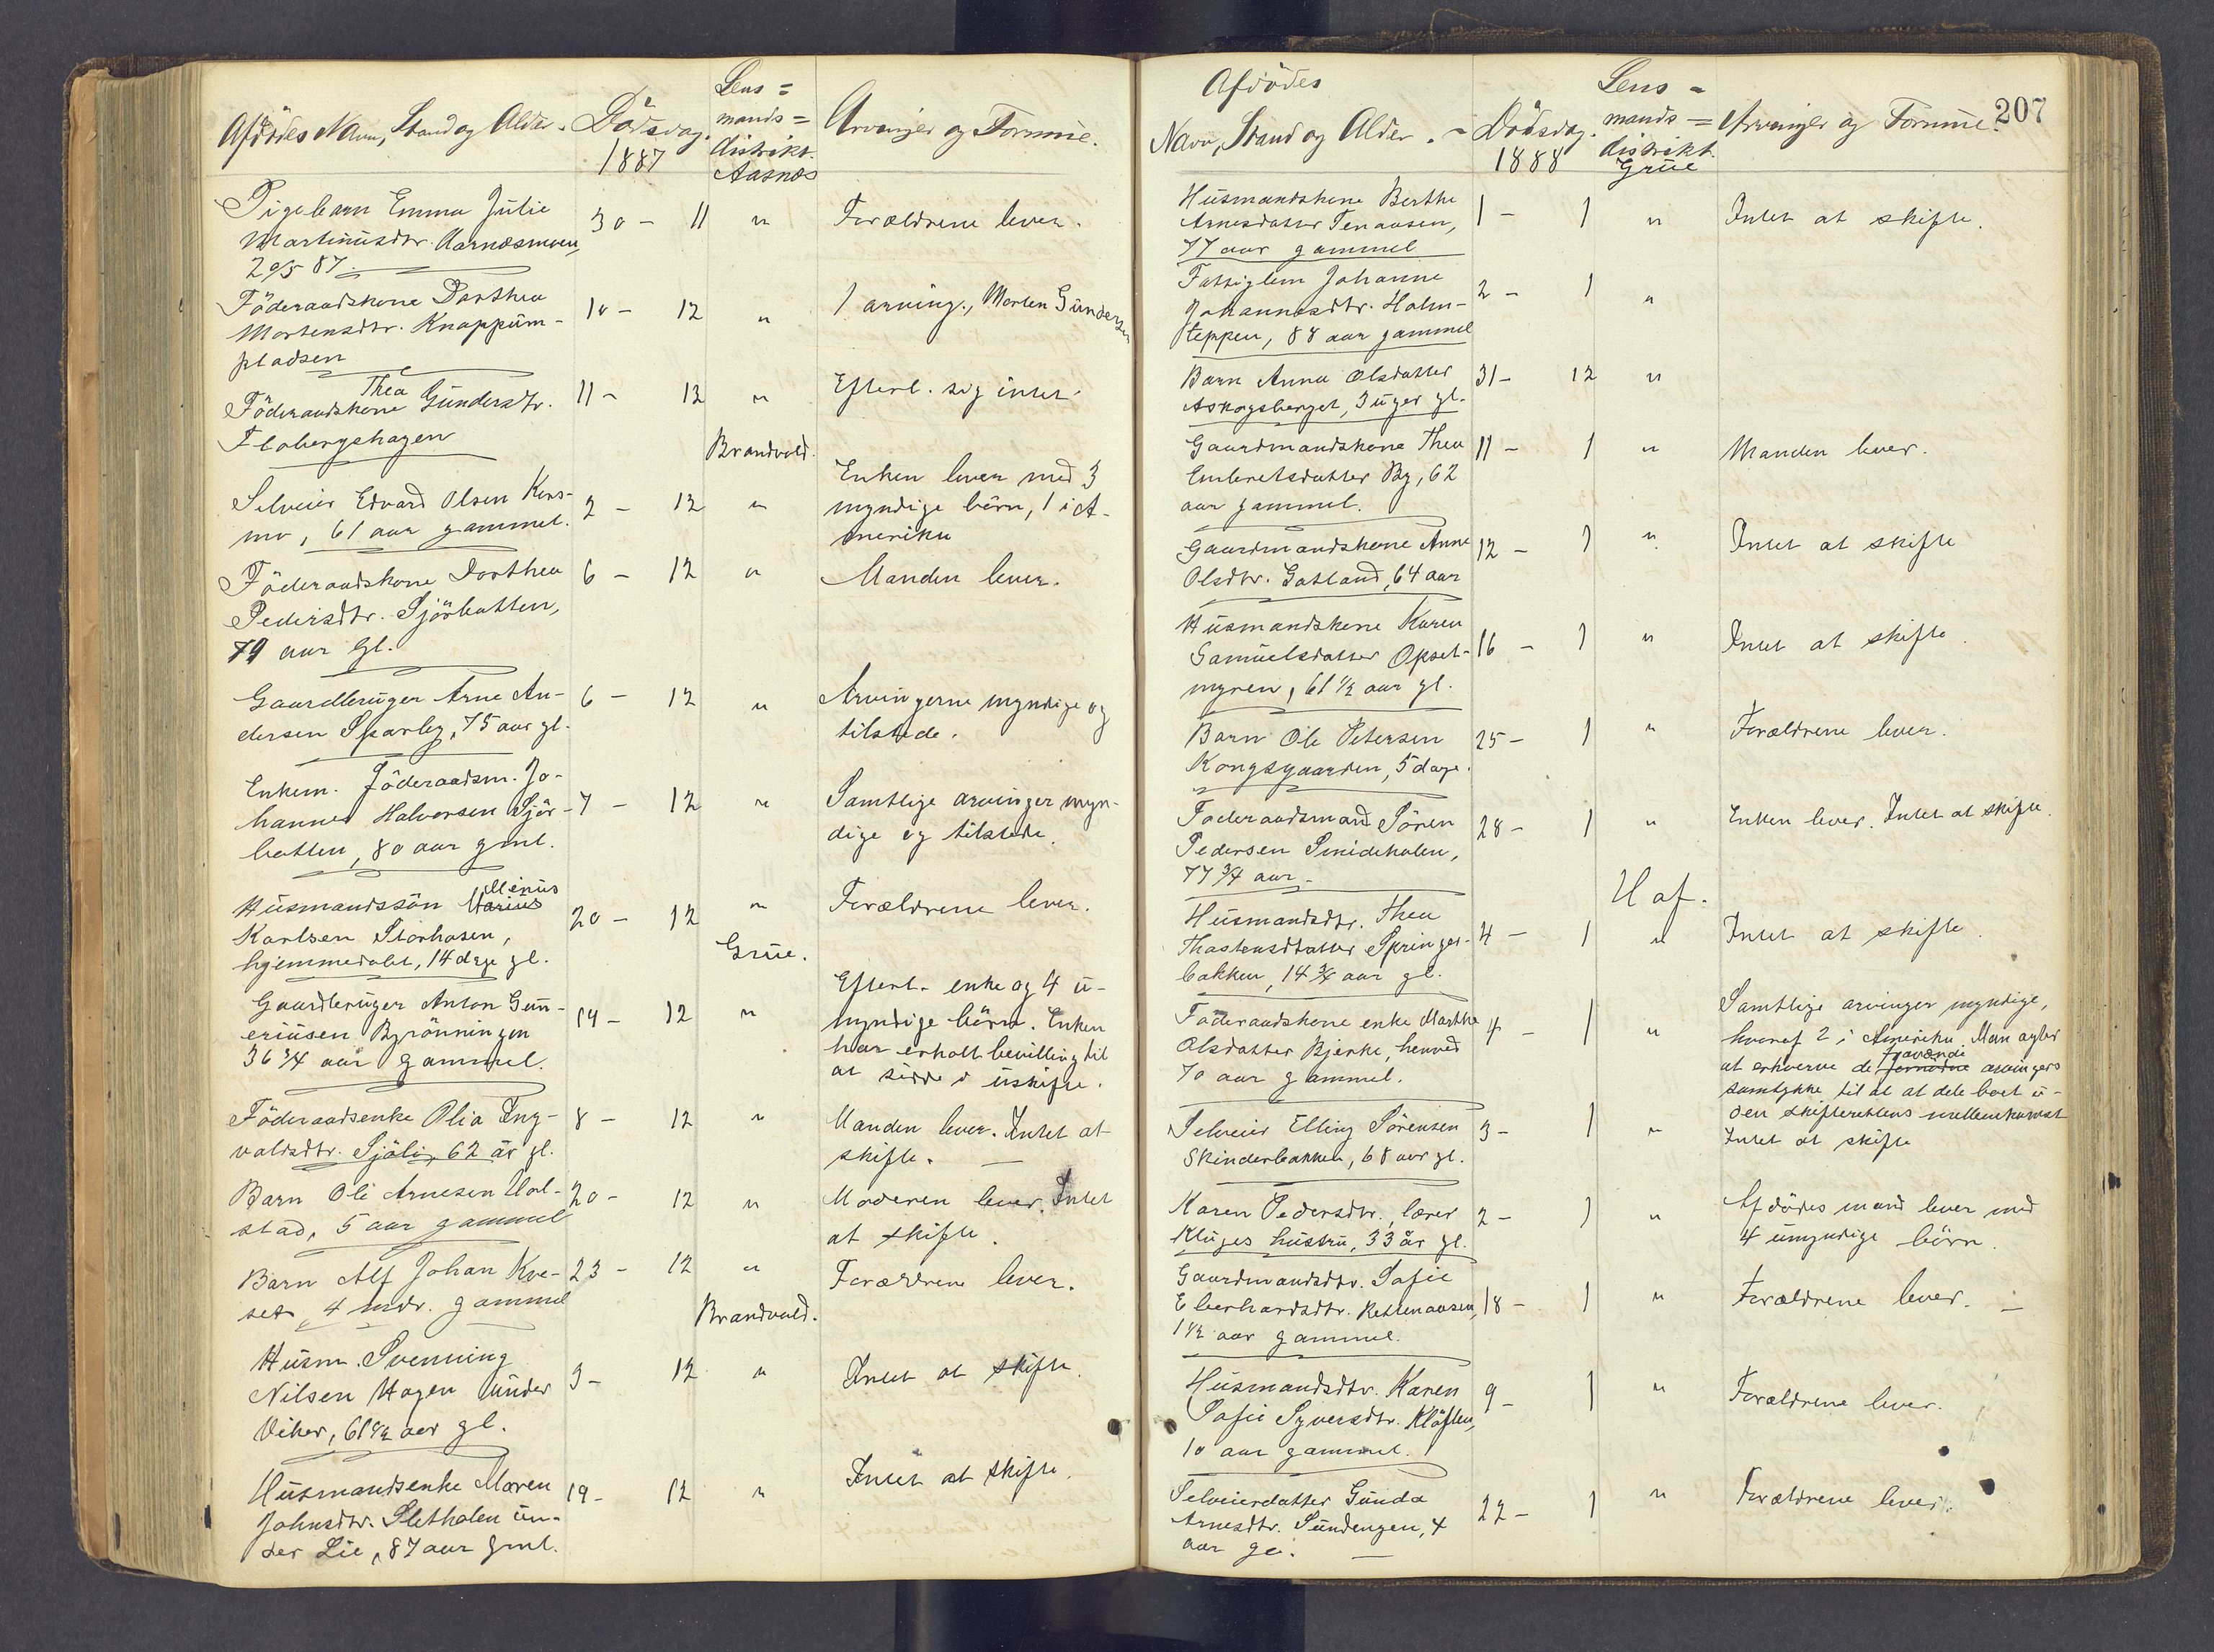 Afdödes Navn, Stand og Alder.
Dödsdag.
1887
Lens=
mands=
distrikt.
Aasnæs
Arvinger og Formue.
Pigebarn Emma Julie
Martinusdtr. Aarnæsmoen,
20/5 87.
30 - 11 "
Forældrene lever.
Föderaadskone Dorthea
Mortensdtr. Knappum-
pladsen
10 - 12 "
1 arving, Morten Gundersen
Thea
Föderaadskone Gundersdtr.
Flobergshagen
11 - 12 "
Efterl. sig intet.
Brandvold.
Selveier Edvard Olsen Kors-
mo, 61 aar gammel.
2 - 12 "
Enken lever med 3
myndige börn, 1 i A-
merika
Föderaadskone Dorthea
Pedersdtr. Sjörbotten,
79 aar gl.
6 - 12 "
Manden lever.
Gaardbruger Arne An-
dersen Sparby, 75 aar gl.
6 - 12 "
Arvingerne myndige og
tilstede.
Enkem. Föderaadsm. Jo-
hannes Halvorsen Sjör-
botten, 80 aar gml.
7 - 12 "
Samtlige arvinger myn-
dige og tilstede.
Minius
Husmandssön Marius
Karlsen Storhasen,
hjemmedöbt, 14 dage gl.
20 - 12 "
Forældrene lever.
Grue.
Gaardbruger Anton Gun-
eriusen Bjrönningen
36 3/4 aar gammel.
14 - 12 "
Efterl. enke og 4 u-
myndige börn. Enken
har erholt bevilling til
at sidde i uskifte.
Föderaadsenke Olia Ing-
valdsdtr. Sjöli, 62 år gl.
8 - 12 "
Manden lever. Intet at
skifte.
Barn Ole Arnesen Ul-
stad, 5 aar gammel
20 - 12 "
Moderen lever. Intet
at skifte.
Barn Alf Johan Kve-
set, 4 mdr. gammel
23 - 12 "
Forældrene lever.
Brandvold.
Husm. Svenning
Nilsen Hagen under
Viker, 61 1/2 aar gl.
3 - 12 "
Intet at skifte.
Husmandsenke Maren
Johnsdtr. Sletholen un-
der Lie, 87 aar gml.
19 - 12 "
Intet at skifte.
207
Afdödes
Navn, Stand og Alder.
Dödsdag.
1888
Lens=
mands=
distrikt.
Grue
Arvinger og Formue.
Husmandskone Berthe
Arnesdatter Tenaasen,
77 aar gammel
1 - 1 "
Intet at skifte.
Fattiglem Johanne
Johannesdtr. Holm-
teppen, 88 aar gammel
2 - 1 "
Barn Anna Olsdatter
Askogsberget, 3 uger gl.
31 - 12 "
Gaardmandskone Thea
Embretsdatter By, 62
aar gammel.
11 - 1 "
Manden lever.
Gaardmandskone Anne
Olsdtr. Gotland, 64 aar
12 - 1 "
Intet at skifte
Husmandskone Karen
Samuelsdatter Opset-
myren, 61 1/2 aar gl.
16 - 1 "
Intet at skifte.
Barn Ole Petersen
Kongsgaarden, 5 dage.
25 - 1 "
Forældrene lever.
Föderaadsmand Sören
Pedersen Smideholen,
77 3/4 aar.
28 - 1 "
Enken lever. Intet at skifte.
Hof.
Husmandsdtr. Thea
Thostensdatter Springer-
bakken, 14 3/4 aar gl.
4 - 1 "
Intet at skifte.
Föderaadskone enke Marthe
Olsdatter Bjerke, henved
70 aar gammel.
4 - 1 "
Samtlige arvinger myndige,
hvoraf 2 i Amerika. Man agter
fravændi
at erhverve de fornödne arvingers
samtykke til at at dele boet u-
den skifterettens mellemkomst
Selveier Elling Sörensen
Skinderbakken, 68 aar gl.
3 - 1 "
Intet at skifte
Karen Pedersdtr., lærer
Kluges hustru, 33 år gl.
2 - 1 "
Afdödes mand lever med
4 umyndige börn.
Gaardmandsdtr. Sofie
Eberhardsdtr. Rettenaasen,
1 1/2 aar gammel.
18 - 1 "
Forældrene lever.
Husmandsdtr. Karen
Sofie Syversdtr. Klöften,
10 aar gammel.
9 - 1 "
Forældrene lever.
Selveierdatter Gunda
Arnesdtr. Sundengen, 4
aar gl.
22 - 1 "
Forældrene lever.